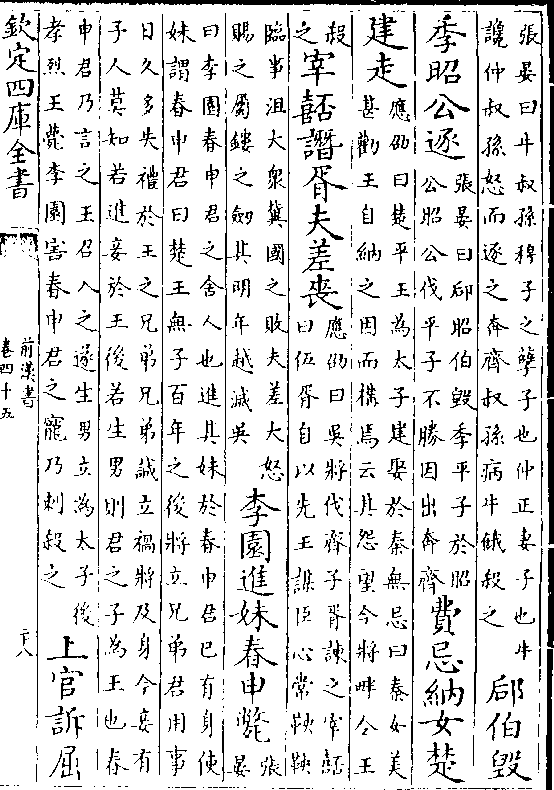 張晏曰牛叔孫穆子之孽子也仲正妻子也牛
讒仲叔孫怒而逐之奔齊叔孫病牛餓殺之
郈伯毀
季昭公逐
張晏曰郈昭伯毀季平子於昭
公昭公伐平子不勝因出奔齊
費忌納女楚
建走
應劭曰楚平王為太子建娶於秦無忌曰秦女美
甚勸王自納之因而構焉云其怨望今將畔令王
殺
之
宰嚭譖胥夫差喪
應劭曰吳將伐齊子胥諫之宰嚭
曰伍胥自以先王謀臣心常鞅鞅
臨事沮大衆冀國之敗夫差大怒
賜之屬鏤之劒其明年越滅吳
李園進妹春申斃
張
晏
曰李園春申君之舍人也進其妹於春申君已有身使
妹謂春申君曰楚王無子百年之後將立兄弟君用事
日久多失禮於王之兄弟兄弟誠立禍將及身今妾有
子人莫知若進妾於王後若生男則君之子為王也春
申君乃言之王召入之遂生男立為太子後
孝烈王薨李園害春申君之寵乃刺殺之
上官訴屈
欽定四庫全書
前漢書
卷四十五
十八